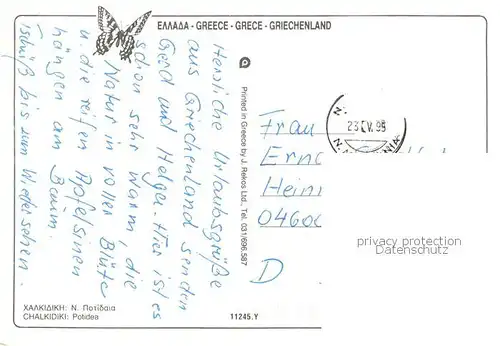 ΕΛΛΑΔΑ - GREECE - GRECE - GRIECHENLAND
Herzliche Urlaubsgrüße
aus Griechenland senden
Gerd und Helga. Hier ist es
schon sehr warm, die
Natur in voller Blüte
u. die reifen Apfelsinen
hängen am Baum.
Tschüß bis zum Wiedersehen.
Printed in Greece by J. Rekos Ltd., Tel. 031/696.587
23 IV. 95
Frau
Erna
Heinr
04600
D
privacy protection
Datenschutz
ΧΑΛΚΙΔΙΚΗ: Ν. Ποτίδαια
CHALKIDIKI: Potidea
11245.Y